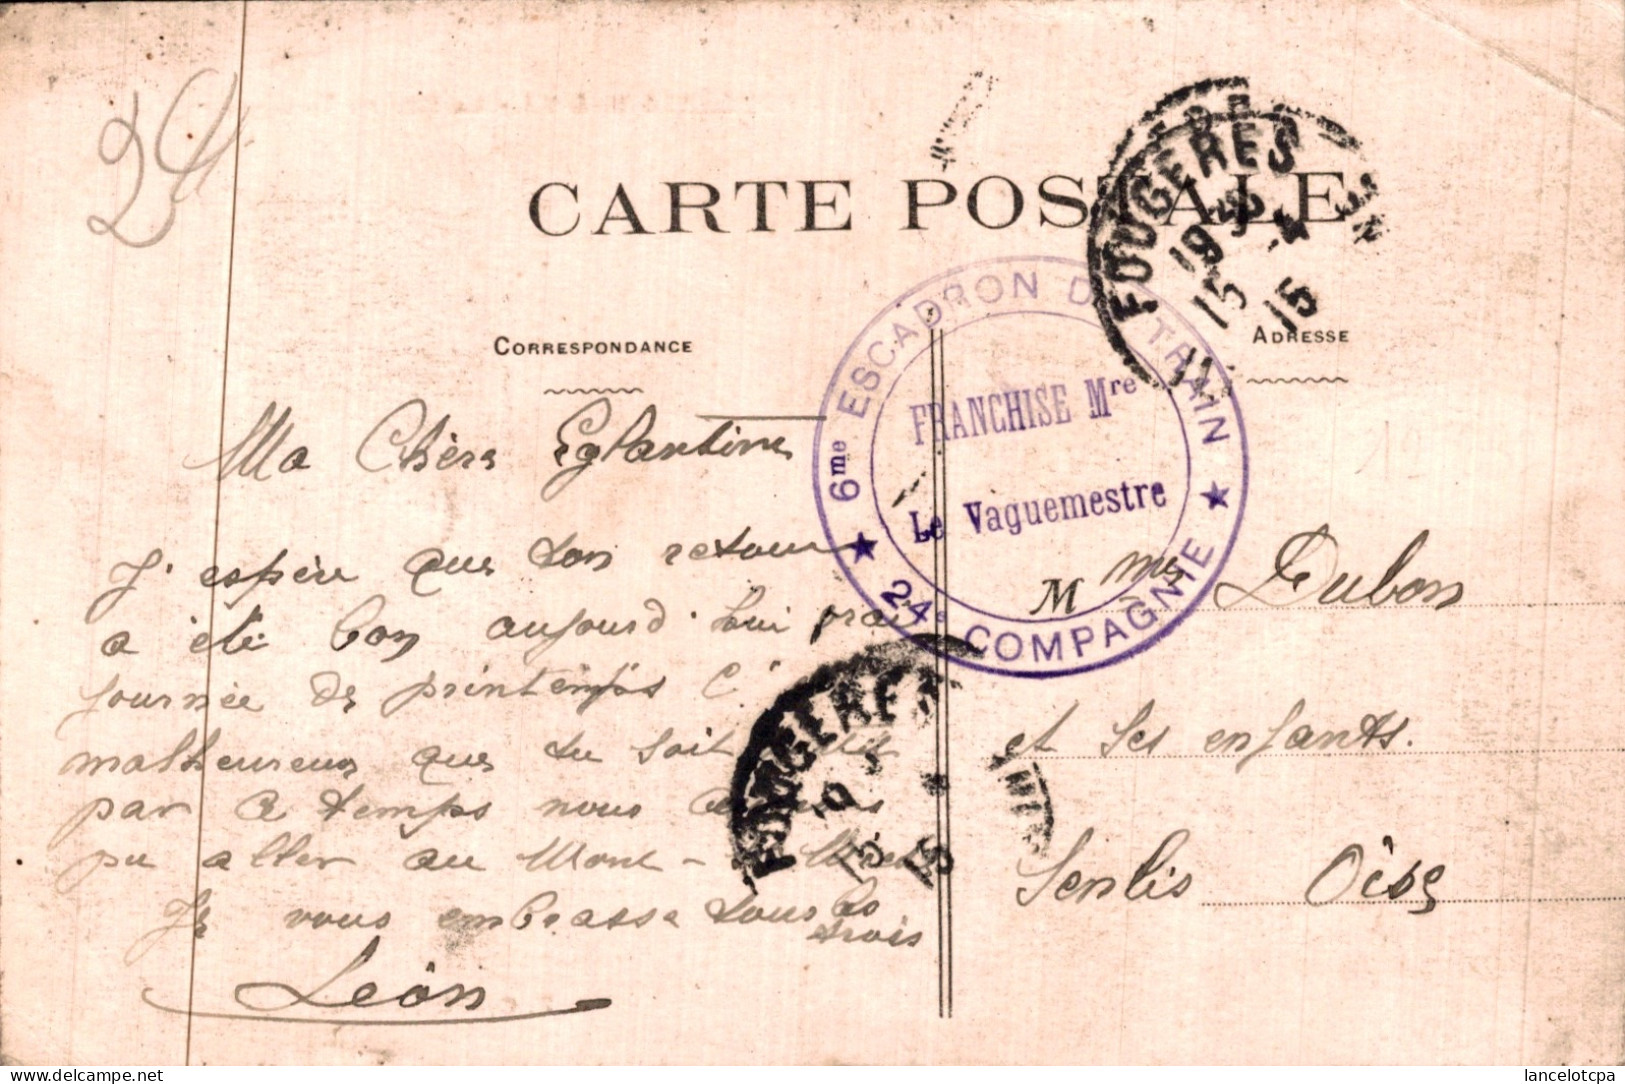 24
CARTE POSTALE
FOUGERES
19 15
15
CORRESPONDANCE
ADRESSE
6me ESCADRON DU TRAIN
FRANCHISE Mre
Le Vaguemestre
24e COMPAGNIE
Ma Chère Eglantine
J'espère que ton retour
a été bon aujourd'hui vrai
journée de printemps c'
malheureux que tu soit
par ce temps nous
pu aller au Mont-
Je vous embrasse tous les
trois
Léon
Mme Dubon
et ses enfants.
Senlis Oise
FOUGERES
15
lancelotcpa